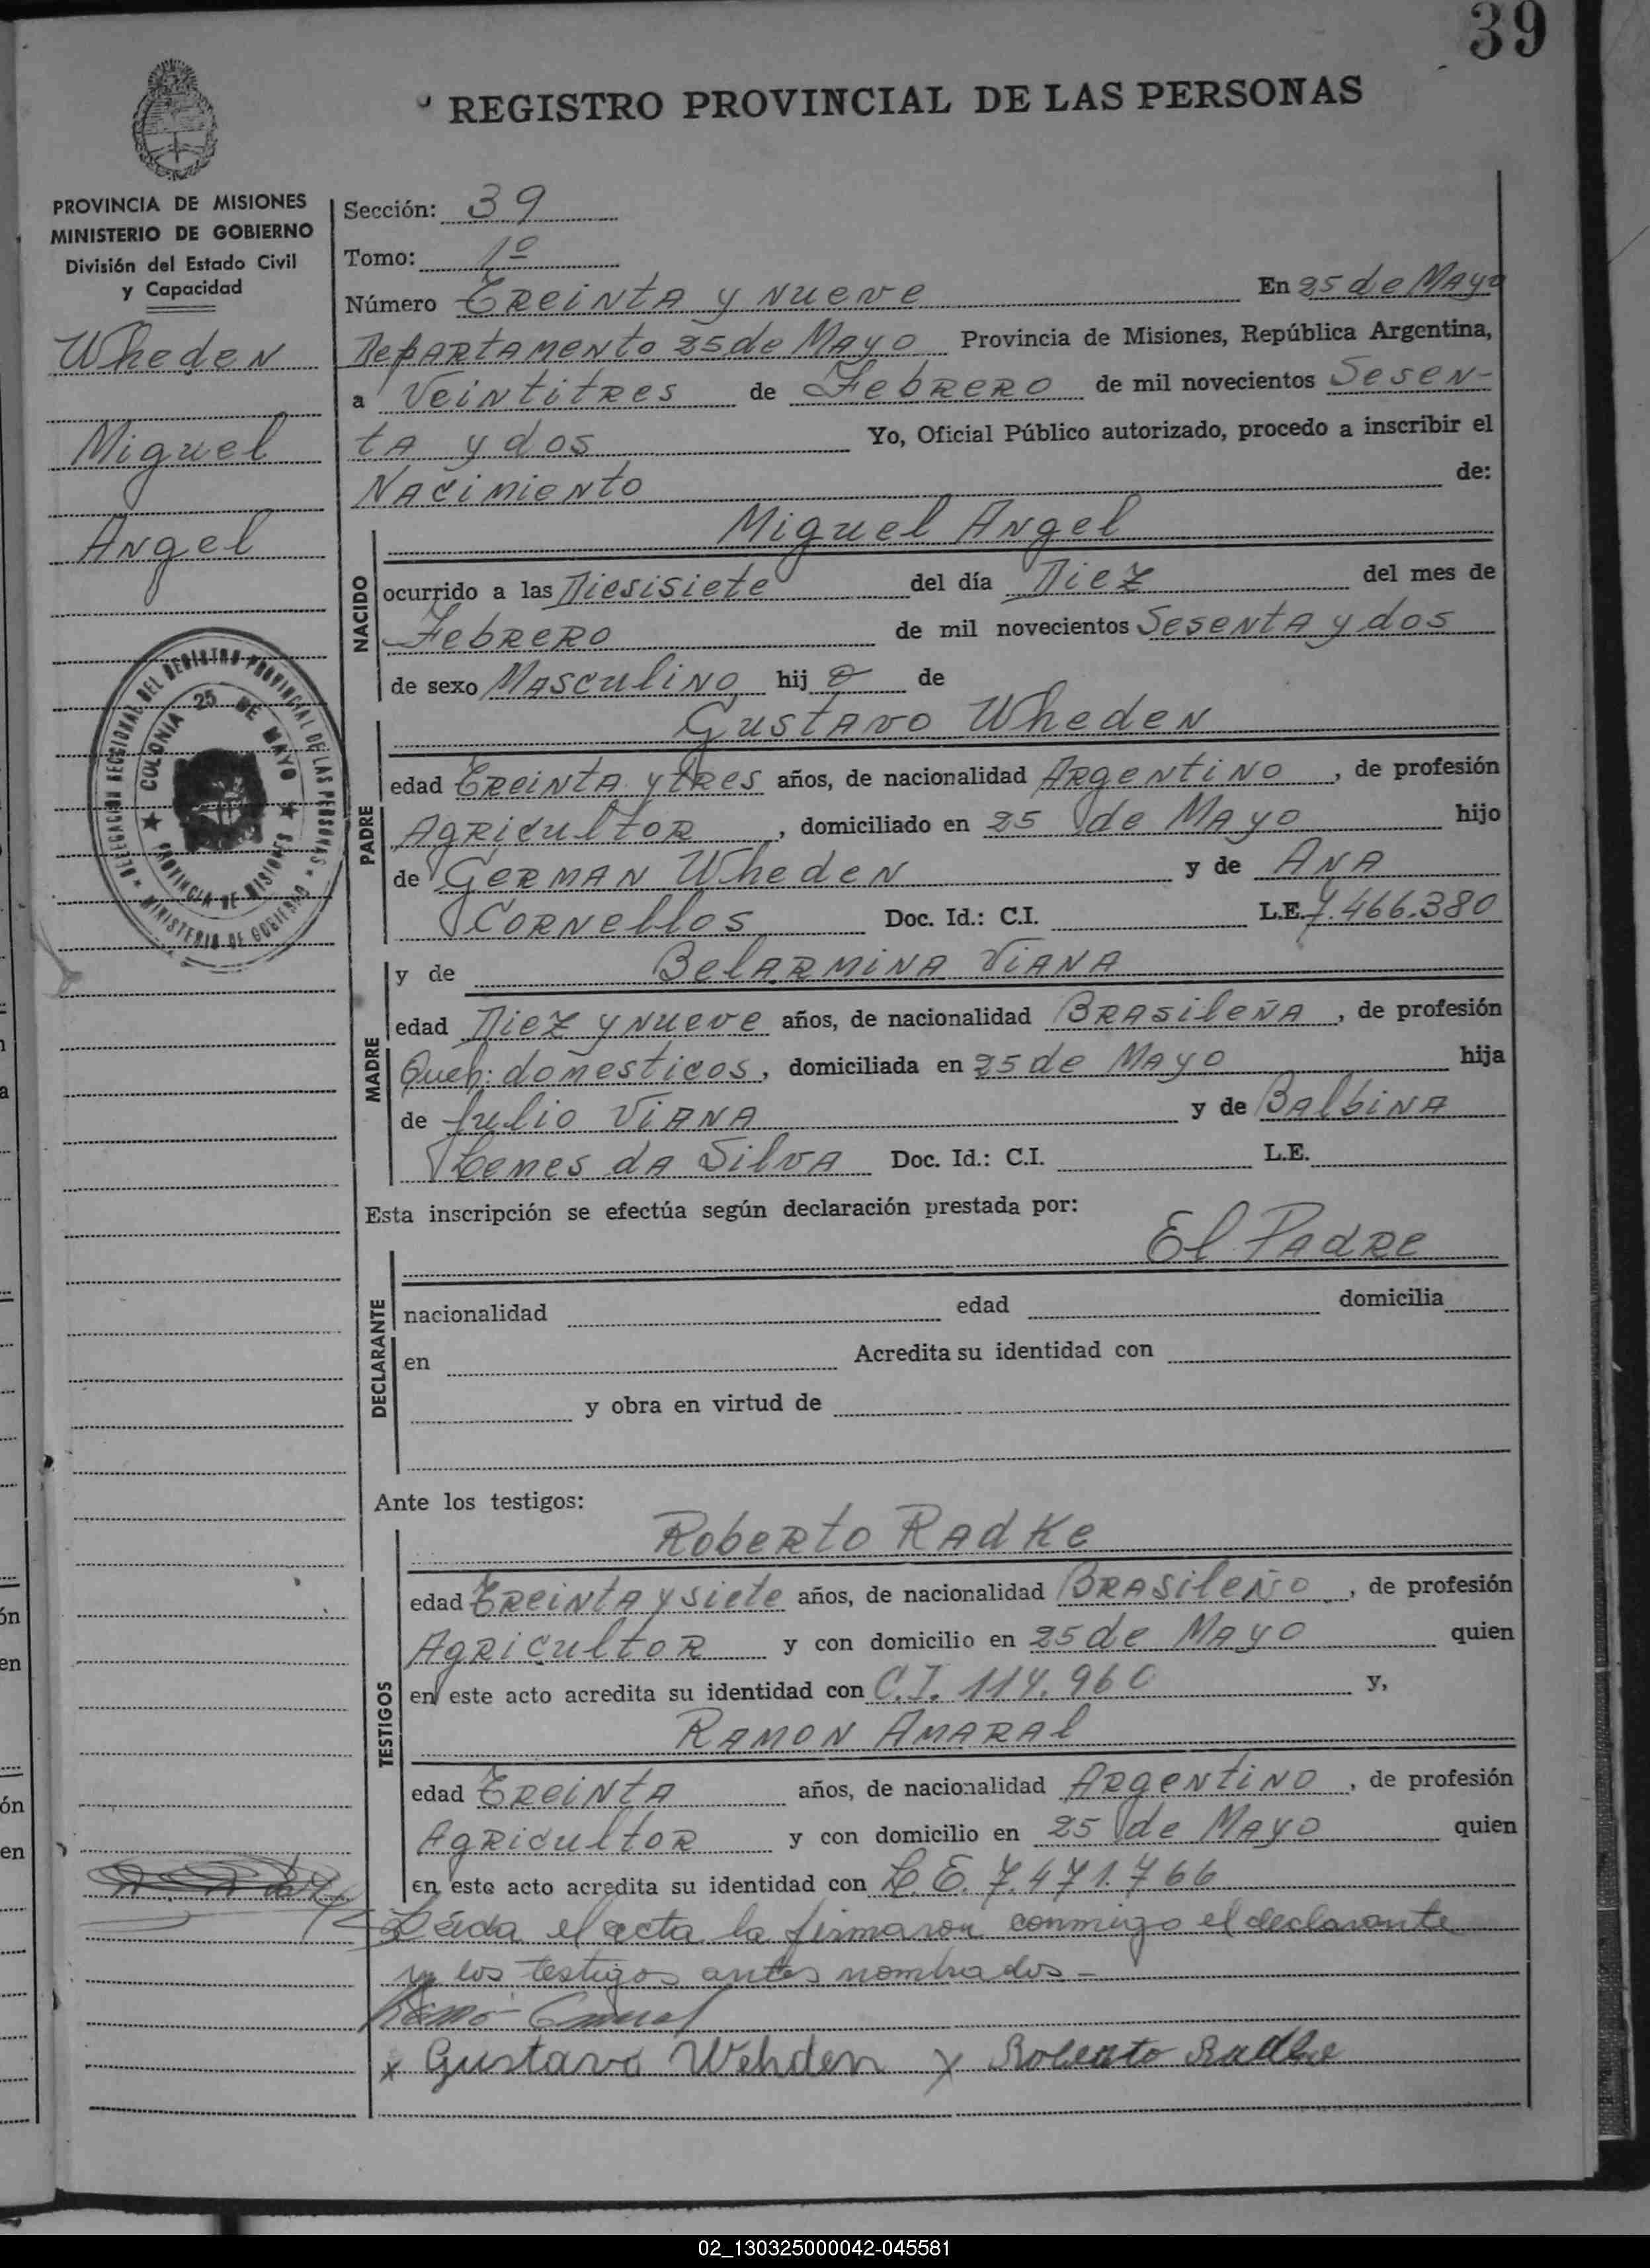 39
REGISTRO PROVINCIAL DE LAS PERSONAS
PROVINCIA DE MISIONES
MINISTERIO DE GOBIERNO
División del Estado Civil
y Capacidad
Wheden
Miguel
Angel
DELEGACION SECCIONAL DEL REGISTRO PROVINCIAL DE LAS PERSONAS
MINISTERIO DE GOBIERNO
COLONIA 25 DE MAYO
PROVINCIA DE MISIONES
Sección: 39
Tomo: 1º
Número Treinta y nueve En 25 de Mayo
Departamento 25 de Mayo Provincia de Misiones, República Argentina,
a Veintitres de Febrero de mil novecientos Sesen-
ta y dos Yo, Oficial Público autorizado, procedo a inscribir el
Nacimiento de:
NACIDO
Miguel Angel
ocurrido a las Diesisiete del día Diez del mes de
Febrero de mil novecientos Sesenta y dos
de sexo Masculino hij o de
PADRE
Gustavo Wheden
edad Treinta y tres años, de nacionalidad Argentino, de profesión
Agricultor, domiciliado en 25 de Mayo hijo
de German Wheden y de Ana
Cornellos Doc. Id.: C.I. L.E. 7.466.380
MADRE
y de Belarmina Viana
edad Diez y nueve años, de nacionalidad Brasileña, de profesión
Queh: domesticos, domiciliada en 25 de Mayo hija
de Julio Viana y de Balbina
Lemes da Silva Doc. Id.: C.I. L.E.
Esta inscripción se efectúa según declaración prestada por:
El Padre
DECLARANTE
nacionalidad edad domicilia
en Acredita su identidad con
y obra en virtud de
Ante los testigos:
TESTIGOS
Roberto Radke
edad Treinta y siete años, de nacionalidad Brasileño, de profesión
Agricultor y con domicilio en 25 de Mayo quien
en este acto acredita su identidad con C.I. 114.960 y,
Ramon Amaral
edad Treinta años, de nacionalidad Argentino, de profesión
Agricultor y con domicilio en 25 de Mayo quien
en este acto acredita su identidad con L.E. 7.471.766
Leida el acta la firmaron conmigo el declarante
y los testigos antes nombrados -
x Gustavo Wehden x Roberto Radke
02_130325000042-045581